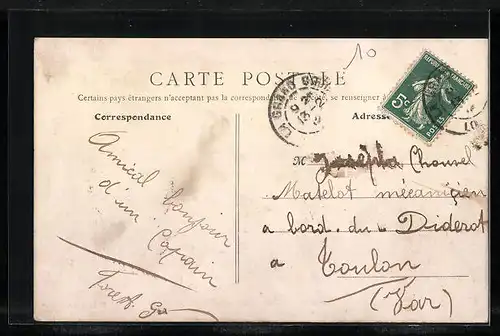 10
CARTE POSTALE
Certains pays étrangers n'acceptant pas la correspondance se renseigner à
Correspondance
Adresse
RÉPUBLIQUE FRANÇAISE
5c
POSTES
LA GRAND
Amical bonjour
d'un Copain
M Joseph
Matelot mécanicien
a bord du Diderot
a Toulon
(Var)